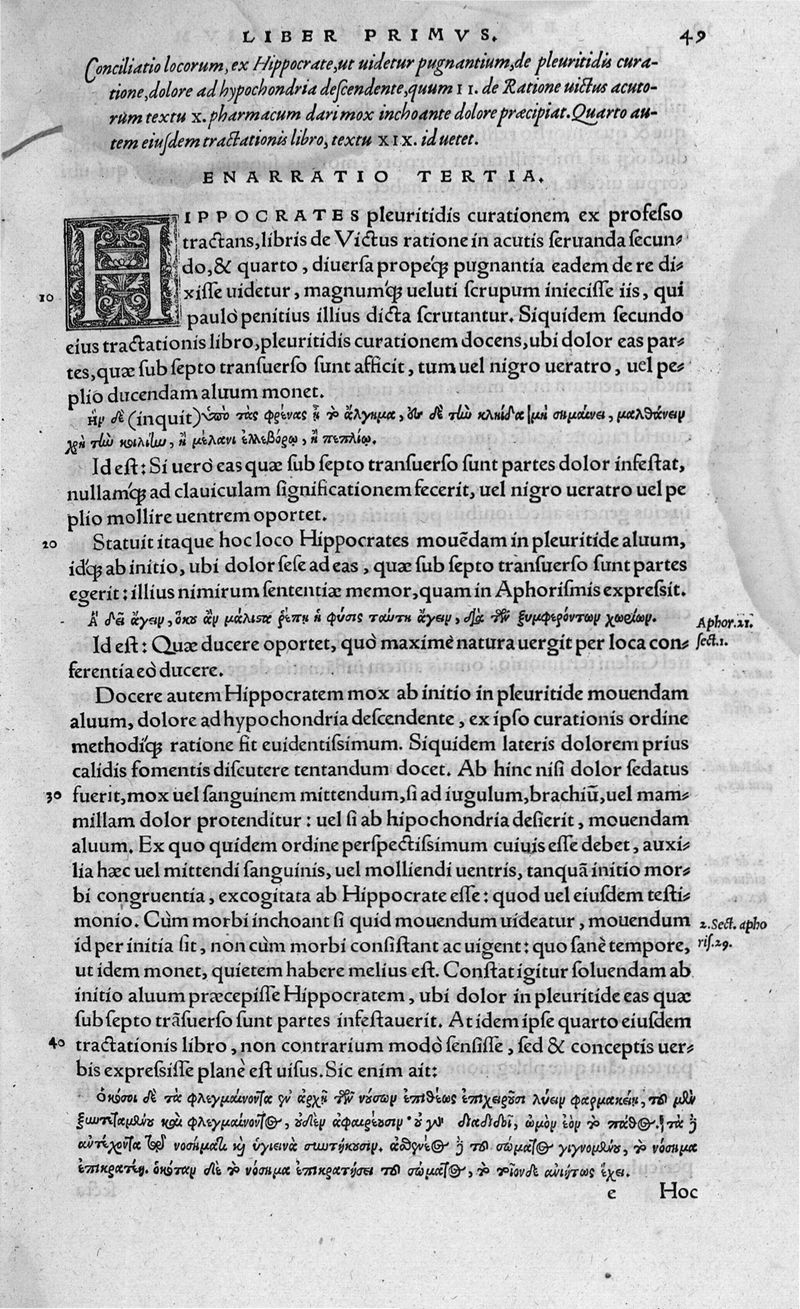 LIBER PRIMVS. 49
Conciliatio locorum, ex Hippocrate, ut uidetur pugnantium, de pleuritidis cura-
tione, dolore ad hypochondria descendente, quum II. de Ratione uictus acuto-
rum textu X. pharmacum dari mox inchoante dolore præcipiat. Quarto au-
tem eiusdem tractationis libro, textu XIX. id uetet.
ENARRATIO TERTIA.
HIPPOCRATES pleuritidis curationem ex professo
tractans, libris de Victus ratione in acutis seruanda secun-
do, & quarto, diuersa propeq́; pugnantia eadem de re di-
10 xisse uidetur, magnumq́; ueluti scrupum iniecisse iis, qui
paulò penitius illius dicta scrutantur. Siquidem secundo
eius tractationis libro, pleuritidis curationem docens, ubi dolor eas par-
tes, quæ sub septo transuerso sunt afficit, tum uel nigro ueratro, uel pe-
plio ducendam aluum monet.
ἢν δὲ (inquit) ὑπὸ τὰς φρένας ᾖ τὸ ἄλγημα, ἐς δὲ τὴν κληῖδα μὴ σημαίνει, μαλθάνειν
χρὴ τὴν κοιλίην, ἢ μέλανι ἐλλεβόρῳ, ἢ πεπλίῳ.
Id est: Si uerò eas quæ sub septo transuerso sunt partes dolor infestat,
nullamq́; ad clauiculam significationem fecerit, uel nigro ueratro uel pe
plio mollire uentrem oportet.
20 Statuit itaque hoc loco Hippocrates mouēdam in pleuritide aluum,
idq́; ab initio, ubi dolor sese ad eas, quæ sub septo transuerso sunt partes
egerit: illius nimirum sententiæ memor, quam in Aphorismis expressit.
Ἃ δεῖ ἄγειν, ὅκου ἂν μάλιστα ῥέπῃ ἡ φύσις ταύτῃ ἄγειν, διὰ τῶν ξυμφερόντων χωρίων.
Aphor. 21.
sect. 1.
Id est: Quæ ducere oportet, quò maximè natura uergit per loca con-
ferentia eò ducere.
Docere autem Hippocratem mox ab initio in pleuritide mouendam
aluum, dolore ad hypochondria descendente, ex ipso curationis ordine
methodiq́; ratione fit euidentissimum. Siquidem lateris dolorem prius
calidis fomentis discutere tentandum docet. Ab hinc nisi dolor sedatus
30 fuerit, mox uel sanguinem mittendum, si ad iugulum, brachiū, uel mam-
millam dolor protenditur: uel si ab hipochondria desierit, mouendam
aluum. Ex quo quidem ordine perspectissimum cuiuis esse debet, auxi-
lia hæc uel mittendi sanguinis, uel molliendi uentris, tanquā initio mor-
bi congruentia, excogitata ab Hippocrate esse: quod uel eiusdem testi-
monio. Cùm morbi inchoant si quid mouendum uideatur, mouendum
2. Sect. apho
ris. 29.
id per initia sit, non cùm morbi consistant ac uigent: quo sanè tempore,
ut idem monet, quietem habere melius est. Constat igitur soluendam ab
initio aluum præcepisse Hippocratem, ubi dolor in pleuritide eas quæ
sub septo trāsuerso sunt partes infestauerit. At idem ipse quarto eiusdem
40 tractationis libro, non contrarium modò sensisse, sed & conceptis uer-
bis expressisse planè est uisus. Sic enim ait:
Ὁκόσοι δὲ τὰ φλεγμαίνοντα ἐν ἀρχῇ τῶν νούσων ἐπιθέως ἐπιχειρέουσι λύειν φαρμακείῃ, τοῦ μὲν
ξυντεταμένου καὶ φλεγμαίνοντος, οὐδὲν ἀφαιρέουσιν· οὐ γὰρ διαδιδοῖ, ὠμὸν ἐὸν τὸ πάθος. τὰ δὲ
ἀντέχοντα τῷ νοσήματι καὶ ὑγιεινὰ συντήκουσιν. ἀσθενέος δὲ τοῦ σώματος γιγνομένου, τὸ νόσημα
ἐπικρατέει. ὁκόταν δὲ τὸ νόσημα ἐπικρατήσει τοῦ σώματος, τὸ τοιόνδε ἀνιήτως ἔχει.
e Hoc